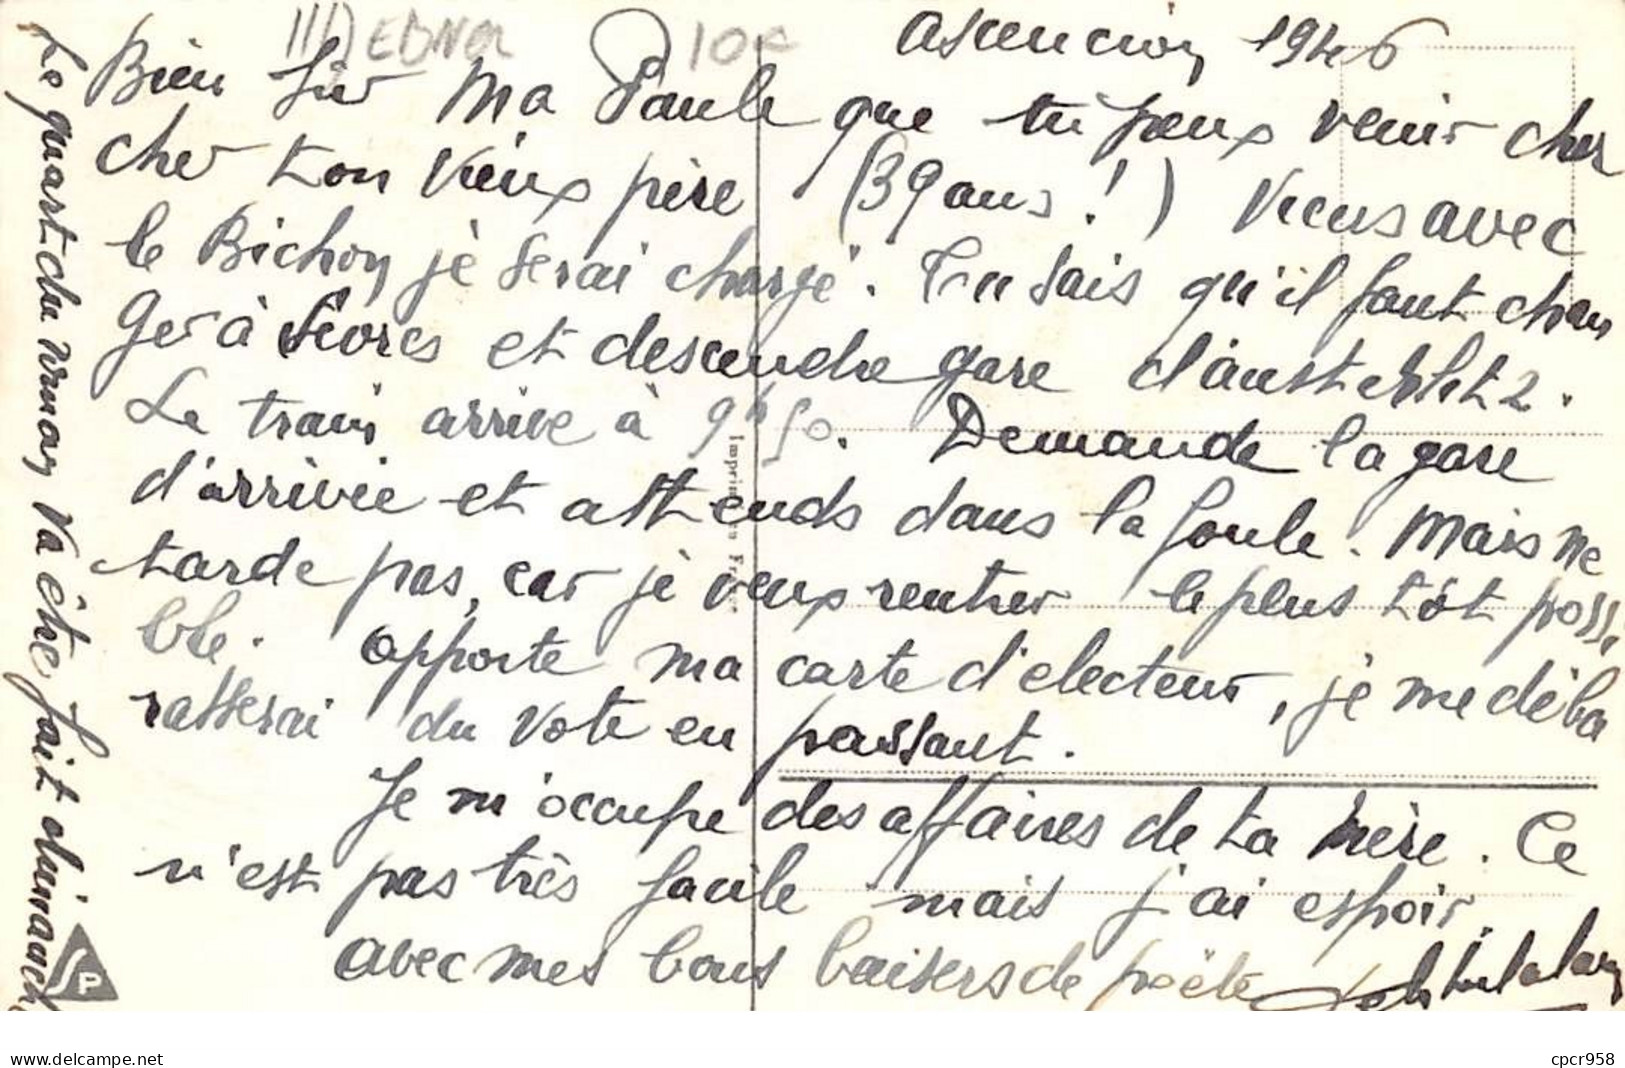 Ascencion 1946
Bien sûr Ma Paule que tu peux venir cher
cher ton vieux père (39 ans !) Viens avec
le Bichon je serai chargé. Tu sais qu'il faut chan
ger à et descendre gare d'austerlitz.
Le train arrive à 9h50. Demande la gare
d'arrivée et attends dans la foule. Mais ne
tarde pas, car je veux rentrer le plus tôt possi
ble. apporte ma carte d'electeur, je me déba
rasserai du vote en passant.
Je m'occupe des affaires de ta mère. Ce
n'est pas très facile mais j'ai espoir.
avec mes bons baisers de poète
Le quart du Va être fait dimanche
Imprimé en France
10€
SP
www.delcampe.net
cpcr958